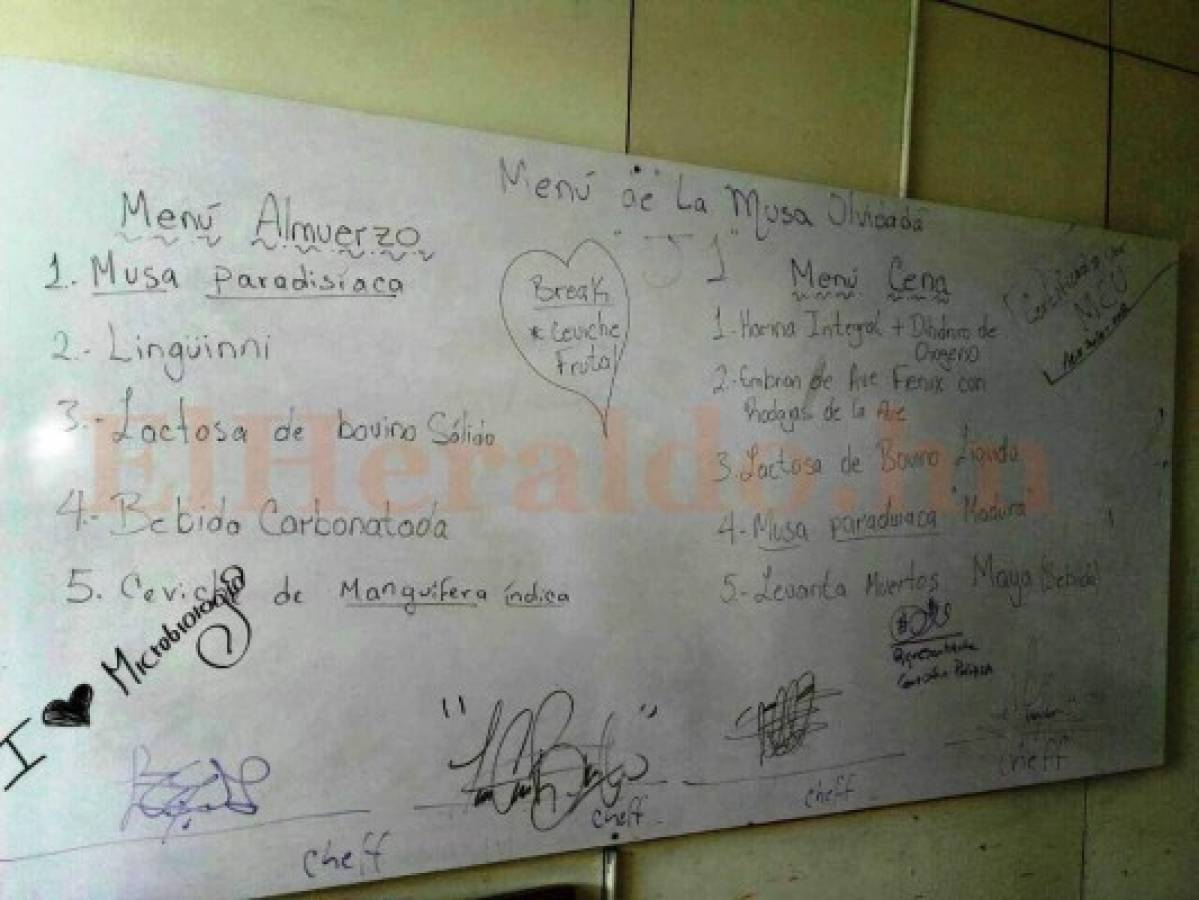 Menú de La Musa Olvidada
"J1"
Menú Almuerzo
1. Musa paradisíaca
2.- Lingüinni
3.- Lactosa de bovino Sólido
4.- Bebida Carbonatada
5. Ceviche de Manguifera índica
Break
* Ceviche
Frutal
Menú Cena
1.- Harina Integral + Dihidro de
Oxogeno
2.- Embrion de Ave Fenix con
Rodajas de la Ave
3. Lactosa de Bovino Liquida
4.- Musa paradisiaca "Madura"
5.- Levanta Muertos Maya (Bebida)
Certificado por
MCU
I ♥ Microbiología
Representante
Comisión Política
cheff
cheff
cheff
cheff
ElHeraldo.hn